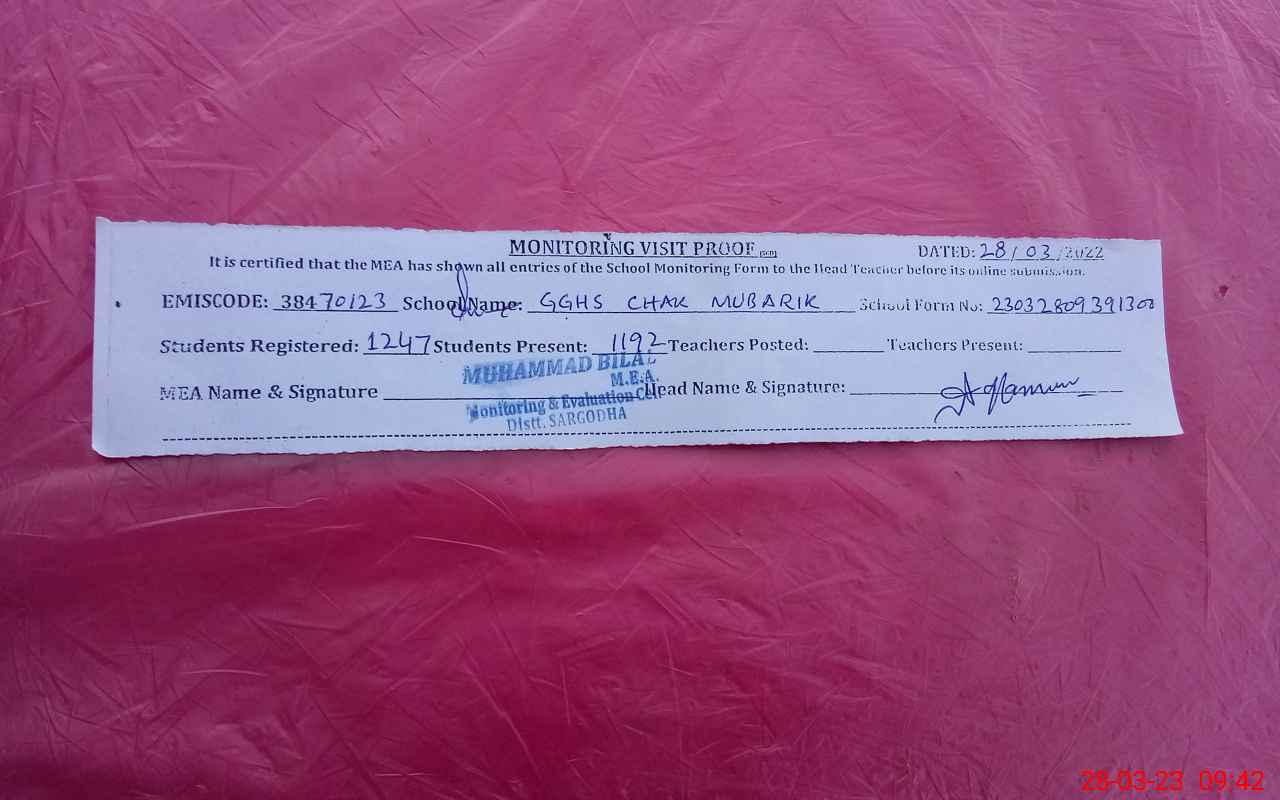 MONITORING VISIT PROOF
DATED: 28/03/2022
It is certified that the MEA has shown all entries of the School Monitoring Form to the Head Teacher before its online submission.
EMISCODE: 38470123 School Name: GGHS CHAK MUBARIK School Form No: 2303280939130
Students Registered: 1247 Students Present: 1192 Teachers Posted: ________ Teachers Present: ________
MUHAMMAD BILAL
M.E.A.
MEA Name & Signature ________ Head Name & Signature: ________
Monitoring & Evaluation Cell
Distt. SARGODHA
28-03-23 09:42